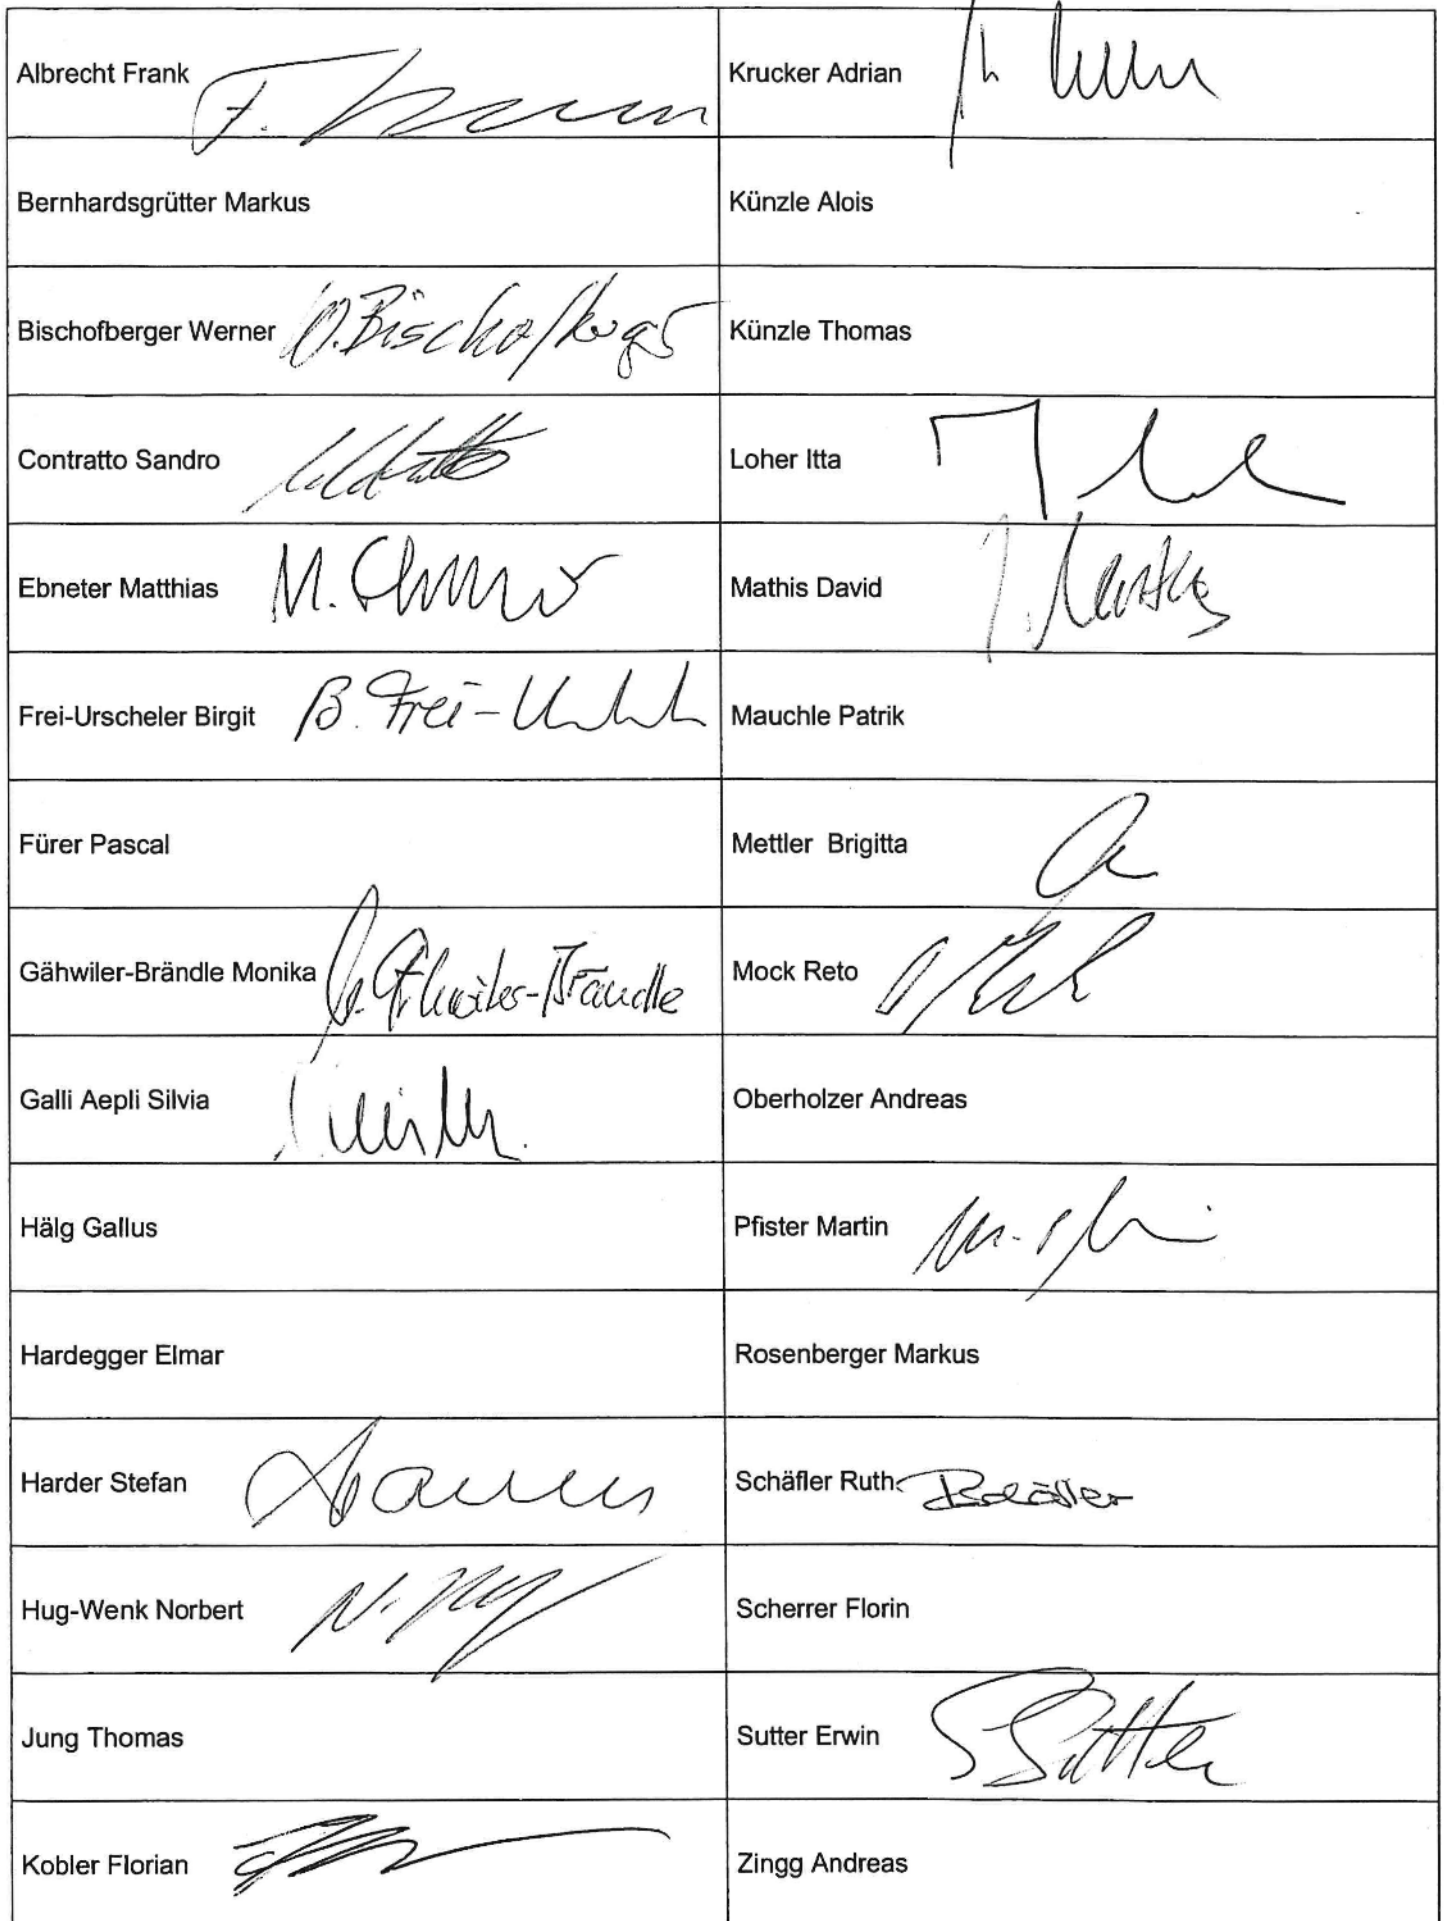 Albrecht Frank
Krucker Adrian
Bernhardsgrütter Markus
Künzle Alois
Bischofberger Werner W. Bischofberger
Künzle Thomas
Contratto Sandro
Loher Itta
Ebneter Matthias M.
Mathis David
Frei-Urscheler Birgit B. Frei-
Mauchle Patrik
Fürer Pascal
Mettler Brigitta
Gähwiler-Brändle Monika Gähwiler-Brändle
Mock Reto
Galli Aepli Silvia
Oberholzer Andreas
Hälg Gallus
Pfister Martin
Hardegger Elmar
Rosenberger Markus
Harder Stefan
Schäfler Ruth
Hug-Wenk Norbert N. Hug
Scherrer Florin
Jung Thomas
Sutter Erwin Sutter
Kobler Florian
Zingg Andreas